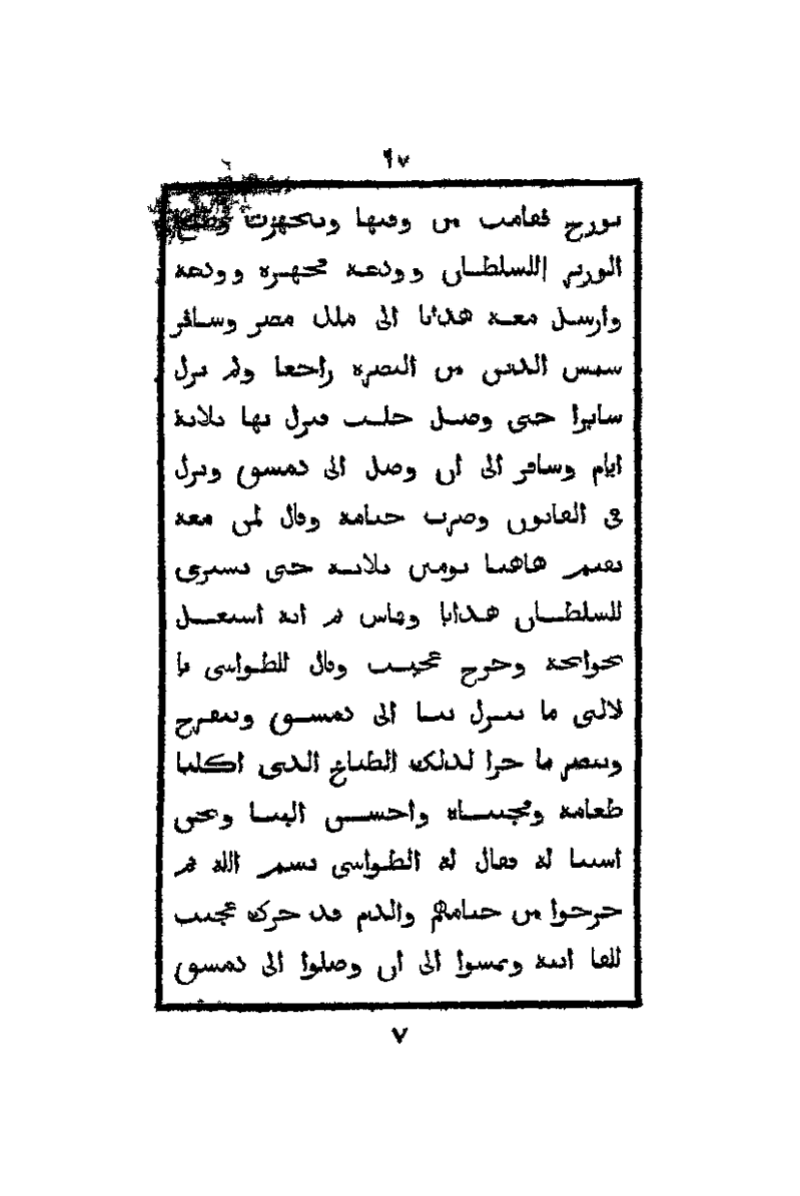 ٩٧
نورج فقامت من وقتها وتجهزت وطلع
الوزير اللسلطان وودعه مجهزه وودعه
وارسل معه هدايا الى ملك مصر وسافر
شمس الدين من البصره راجعا ولم يزل
سايرا حتى وصل حلب فنزل بها ثلاثة
ايام وسافر الى ان وصل الى دمشق ونزل
فى القانون وضرب خيامه وقال لمن معه
نقيم هاهنا يومين ثلاثه حتى نشترى
للسلطان هدايا وقماش ثم انه اشتغل
بحوايجه وخرج عجيب وقال للطواشى يا
لالتى ما ننزل بنا الى دمشق ونتفرج
وننصر ما جرا لذلك الطباخ الذى اكلنا
طعامه وفجيناه واحسن الينا ونحن
اسينا له فقال له الطواشى بسم الله ثم
خرجوا من خيامهم والدم قد حرك عجيب
للقا ابيه وتمشوا الى ان وصلوا الى دمشق
٧